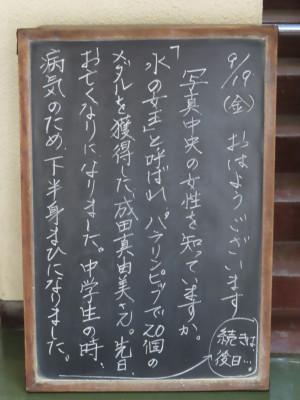 9/19(金) おはようございます
写真中央の女性を知っていますか。
「水の女王」と呼ばれ パラリンピックで20個の
メダルを獲得した成田真由美さん。先日、
お亡くなりになりました。中学生の時、
病気のため、下半身まひになりました。
続きは、
後日…。